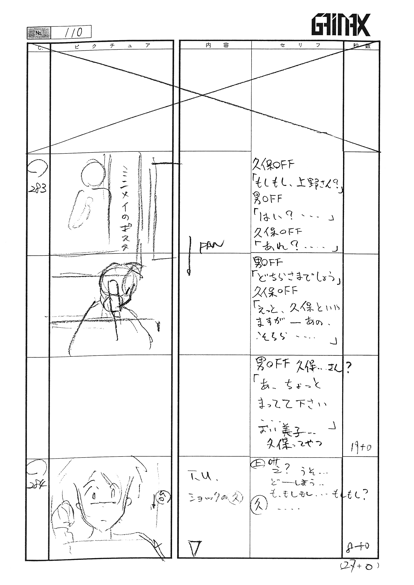 GAINAX
No. 110
C ピクチュア 内容 セリフ 秒数
283
ミンメイのポスター
PAN
久保OFF
「もしもし、上野さん?」
男OFF
「はい?‥‥」
久保OFF
「あれ?‥‥」
男OFF
「どちらさまでしょう」
久保OFF
「えっと、久保といい
ますが ー あの
そちら‥‥
男OFF 久保‥さん?
「あ、ちょっと
まってて下さい
‥‥‥ 」
おい 美子‥
久保ってやつ
19+0
284
T.U.
ショックの 久
え? うそ‥
どーしよう‥
も、もしもし‥ もしもし?
久 ‥‥
8+0
(27+0)